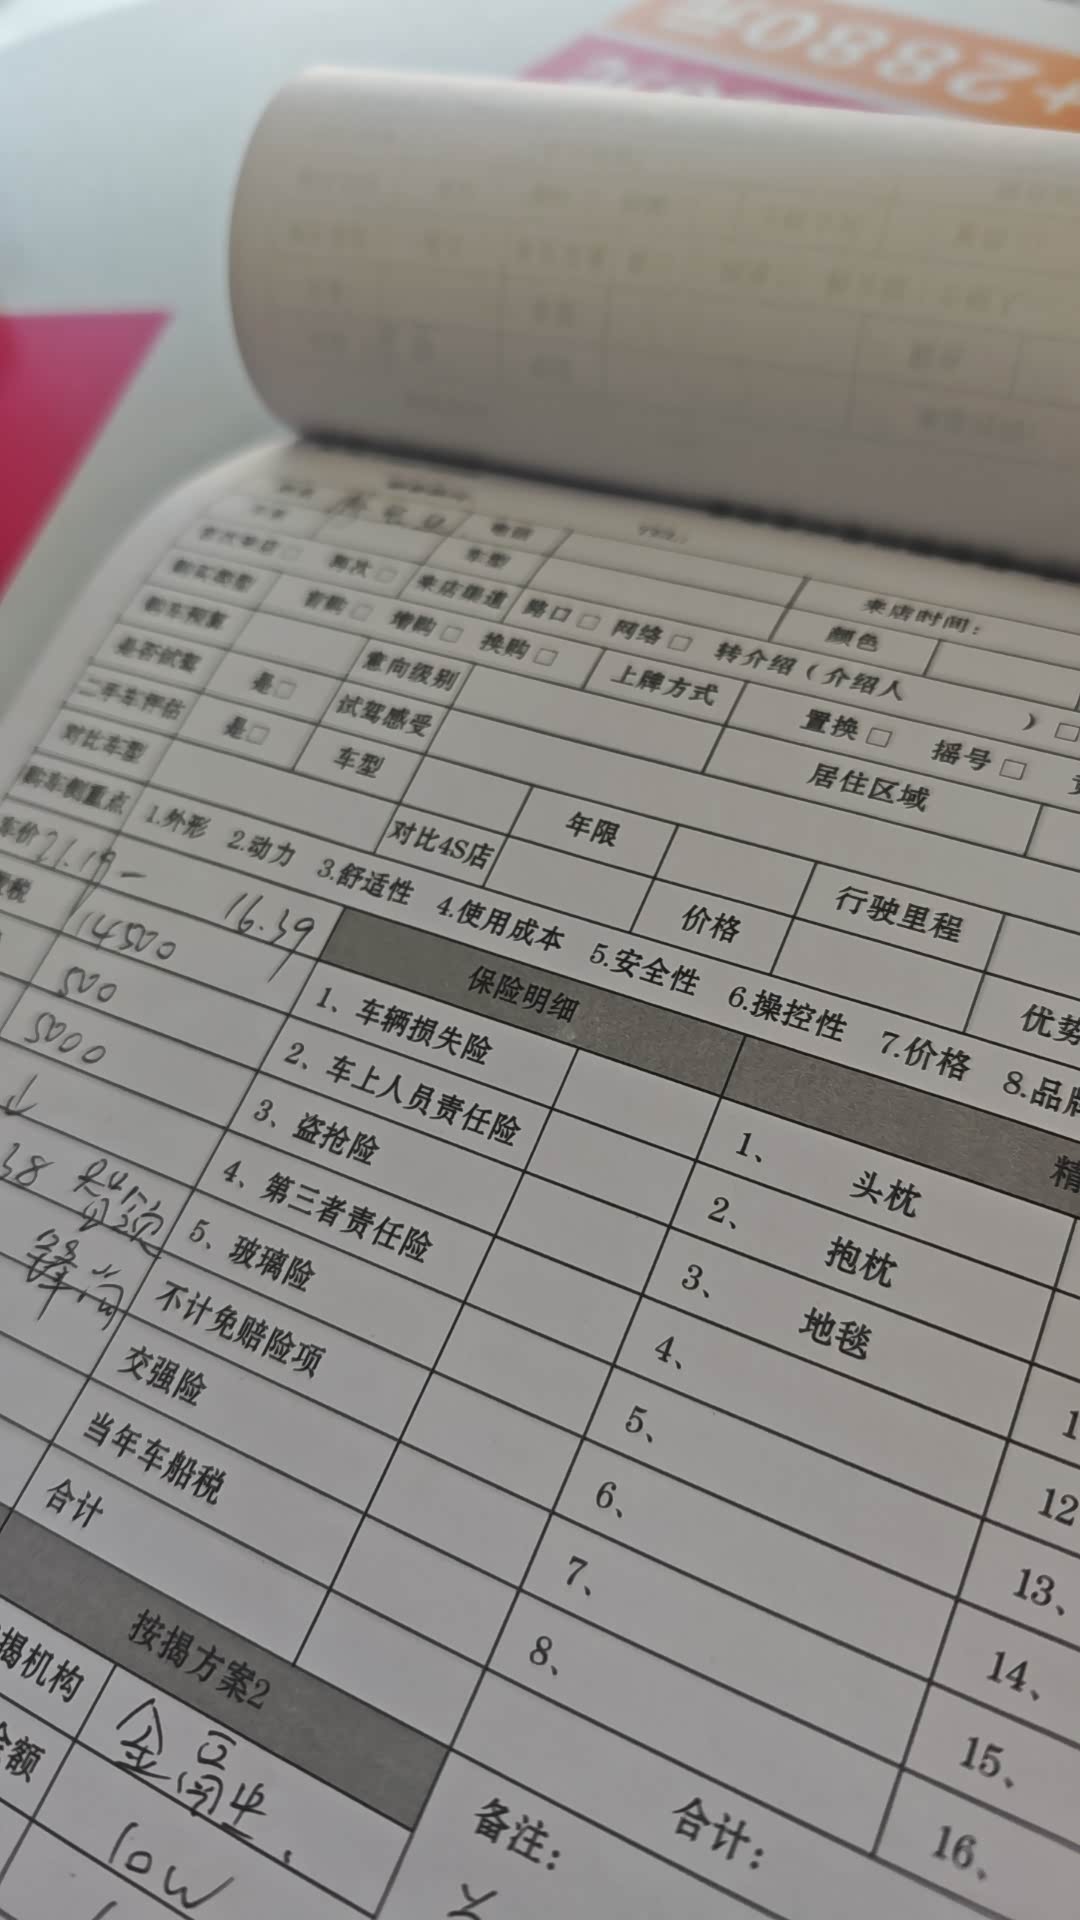 +2880元
来店时间：
车型
颜色
首次来店□ 再次□ 来店渠道 路口□ 网络□ 转介绍（介绍人 ）□
购买类型 首购□ 增购□ 换购□ 上牌方式 置换□ 摇号□
购车预算 意向级别 居住区域
是否试驾 是□ 试驾感受
二手车评估 是□ 车型 年限 行驶里程
对比车型 对比4S店 价格 优势
购车侧重点 1.外形 2.动力 3.舒适性 4.使用成本 5.安全性 6.操控性 7.价格 8.品牌
车价 21.19- 16.39 保险明细 精
14500 1、车辆损失险 1、 头枕
500 2、车上人员责任险 2、 抱枕
5000 3、盗抢险 3、 地毯
↓ 4、第三者责任险 4、
38 5、玻璃险 5、
不计免赔险项 6、 12
交强险 7、 13、
当年车船税 8、 14、
合计 15、
按揭方案2 合计： 16、
揭机构 备注：
金额 10W